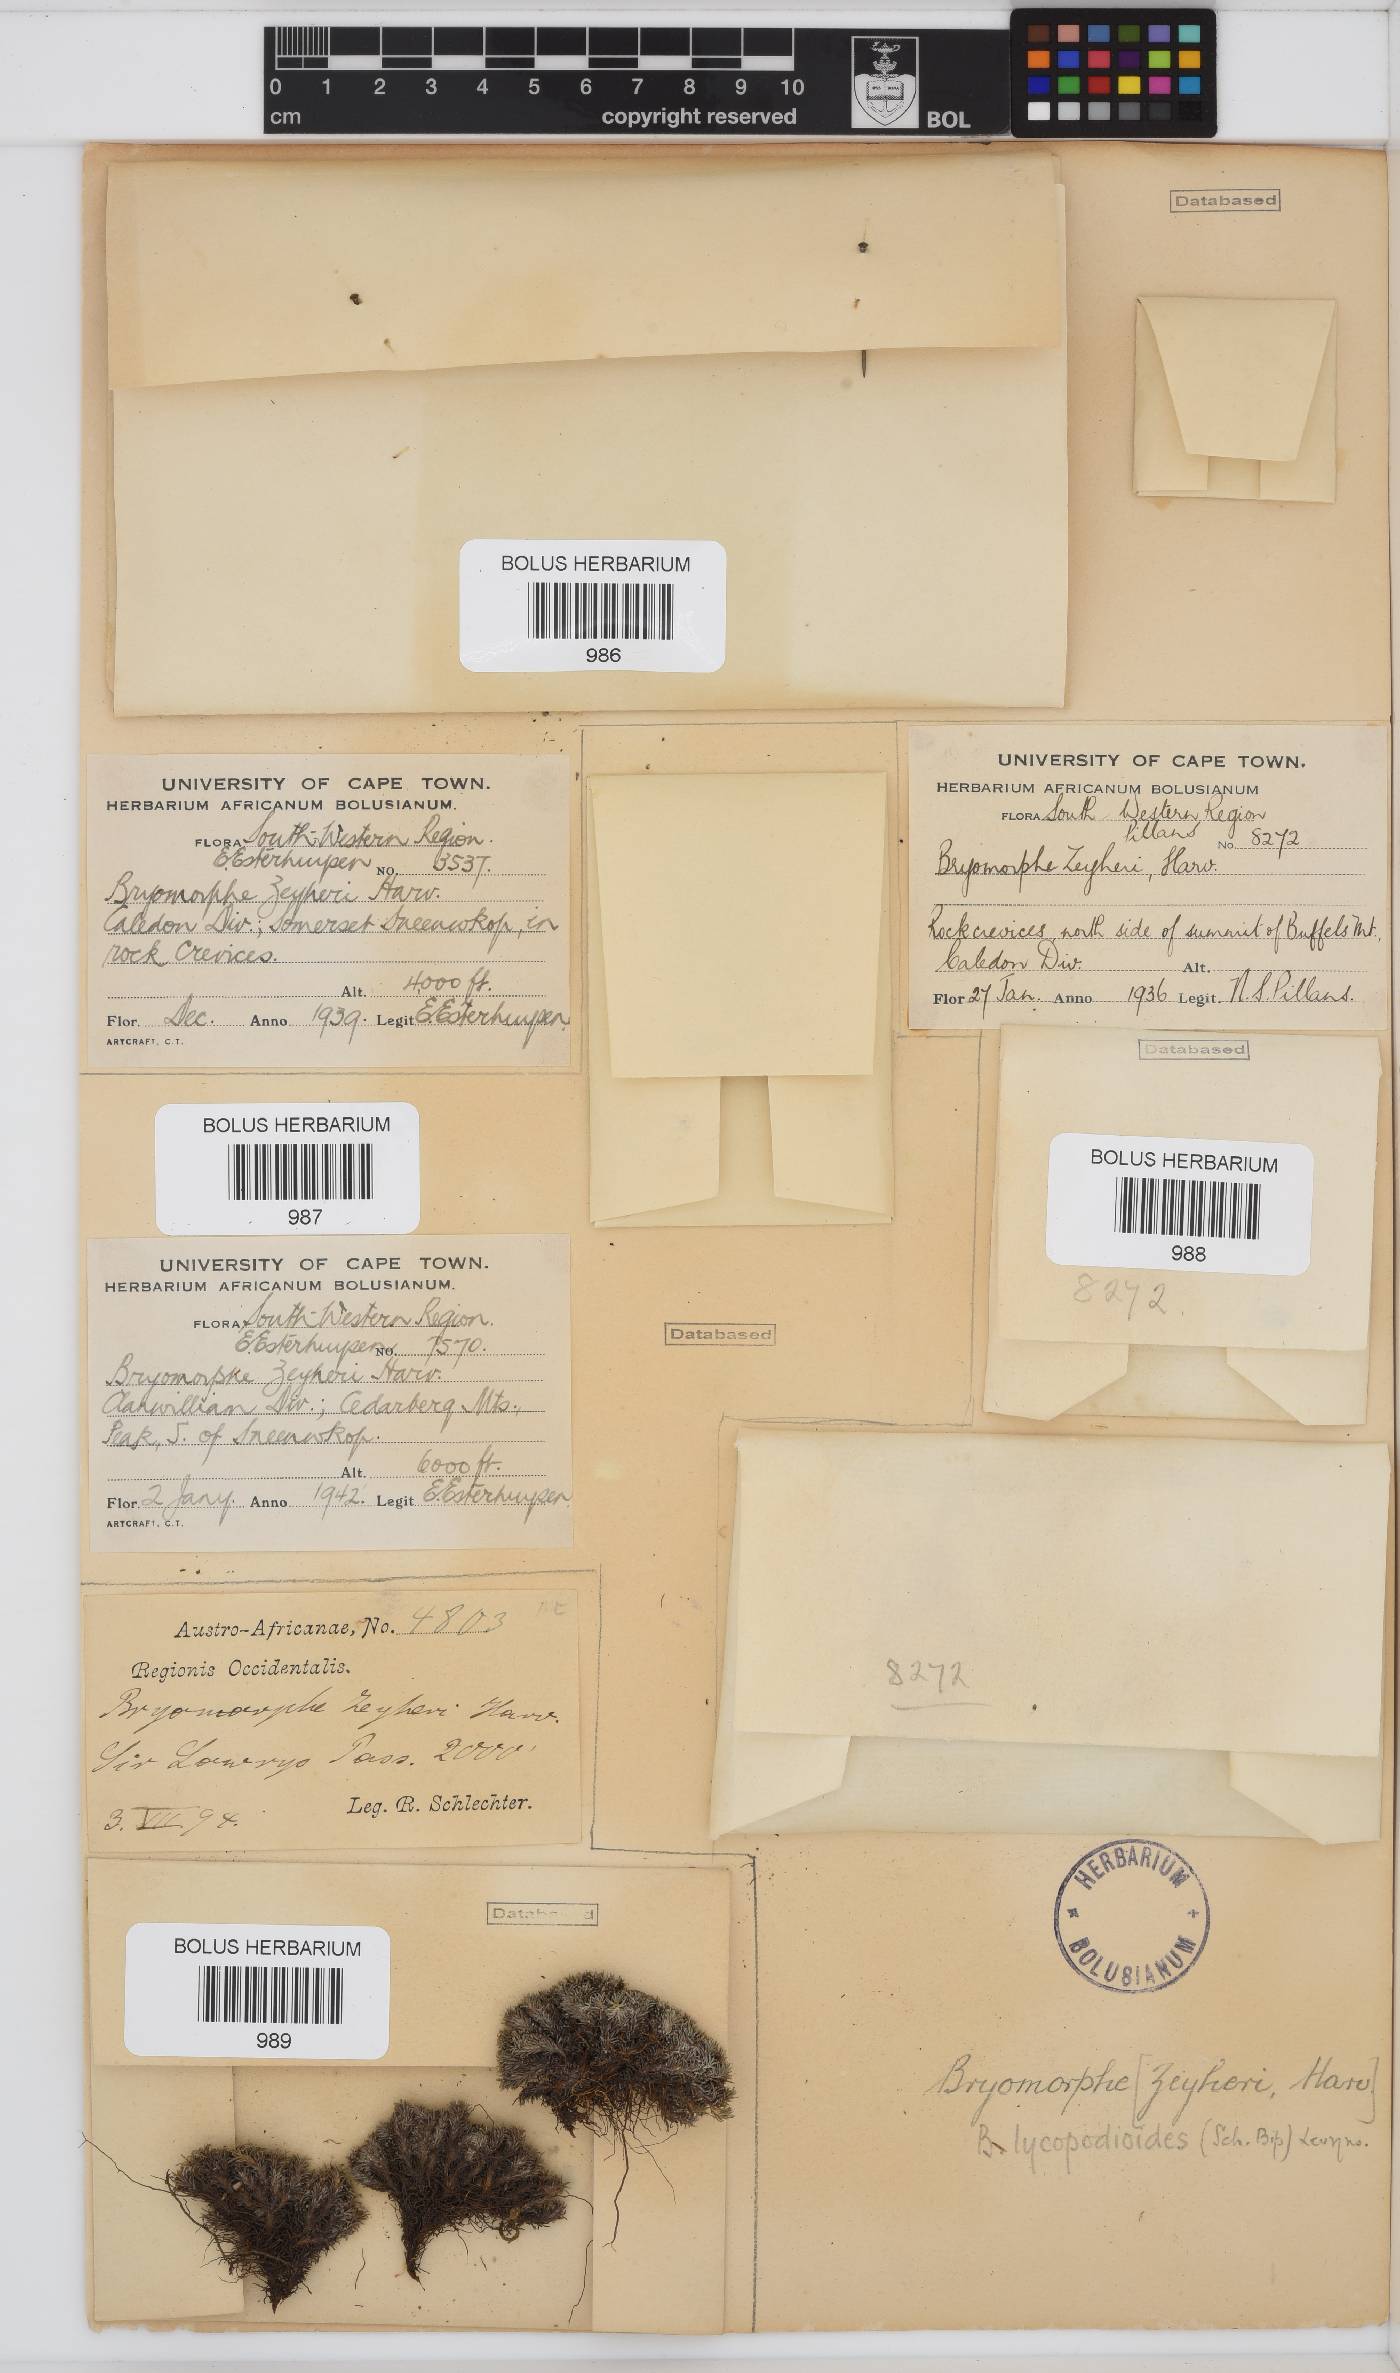 0 1 2 3 4 5 6 7 8 9 10
cm
copyright reserved
BOL
Databased
BOLUS HERBARIUM
986
UNIVERSITY OF CAPE TOWN.
HERBARIUM AFRICANUM BOLUSIANUM.
FLORA South-Western Region.
E. Esterhuysen No. 3537.
Bryomorphe Zeyheri Harv.
Caledon Div.; Somerset Sneeuwkop, in
rock crevices.
Alt. 4,000 ft.
Flor. Dec. Anno 1939. Legit E. Esterhuysen.
ARTCRAFT, C.T.
UNIVERSITY OF CAPE TOWN.
HERBARIUM AFRICANUM BOLUSIANUM
FLORA South Western Region
Pillans No. 8272
Bryomorphe Zeyheri, Harv.
Rock crevices, north side of summit of Buffels Mt.,
Caledon Div. Alt.
Flor 27 Jan. Anno 1936 Legit. N. S. Pillans.
Databased
BOLUS HERBARIUM
988
8272.
BOLUS HERBARIUM
987
UNIVERSITY OF CAPE TOWN.
HERBARIUM AFRICANUM BOLUSIANUM.
FLORA South-Western Region.
E. Esterhuysen No. 7570.
Bryomorphe Zeyheri Harv.
Clanwillian Div.; Cedarberg Mts.,
Peak, S. of Sneeuwkop.
Alt. 6000 ft.
Flor. 2 Jany. Anno 1942. Legit E. Esterhuysen
ARTCRAFT, C.T.
Databased
8272
Austro-Africanae, No. 4803
Regionis Occidentalis.
Bryomorphe Zeyheri Harv.
Sir Lowrys Pass. 2000'
3. VII. 94.
Leg. R. Schlechter.
Databased
BOLUS HERBARIUM
989
HERBARIUM
BOLUSIANUM
Bryomorphe [Zeyheri, Harv]
B. lycopodioides (Sch. Bip) Levyns.